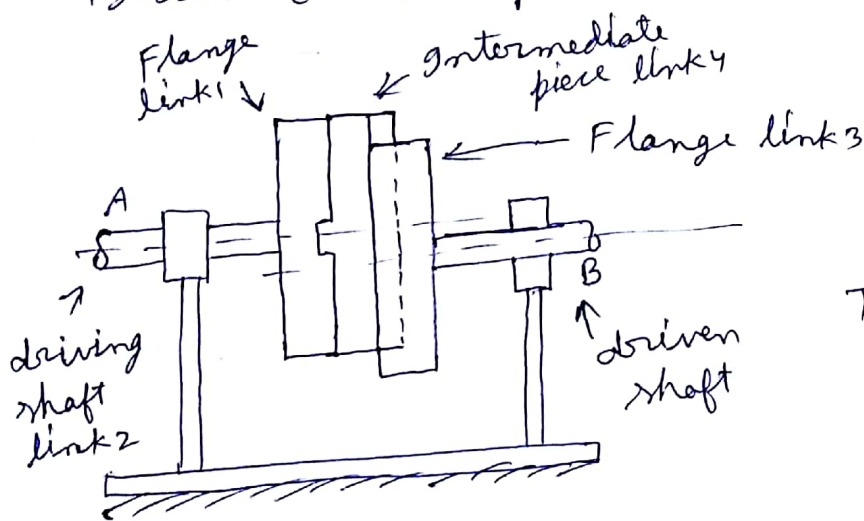 Flange
link1
Intermediate
piece link4
Flange link3
A
B
driving
shaft
link2
driven
shaft